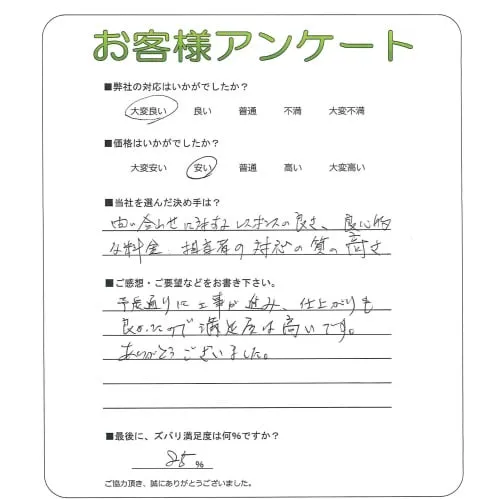 お客様アンケート
■弊社の対応はいかがでしたか？
大変良い 良い 普通 不満 大変不満
■価格はいかがでしたか？
大変安い 安い 普通 高い 大変高い
■当社を選んだ決め手は？
問い合わせに対するレスポンスの良さ、良心的
な料金、担当者の対応の質の高さ
■ご感想・ご要望などをお書き下さい。
予定通りに工事が進み、仕上がりも
良かったので満足度は高いです。
ありがとうございました。
■最後に、ズバリ満足度は何％ですか？
85 %
ご協力頂き、誠にありがとうございました。